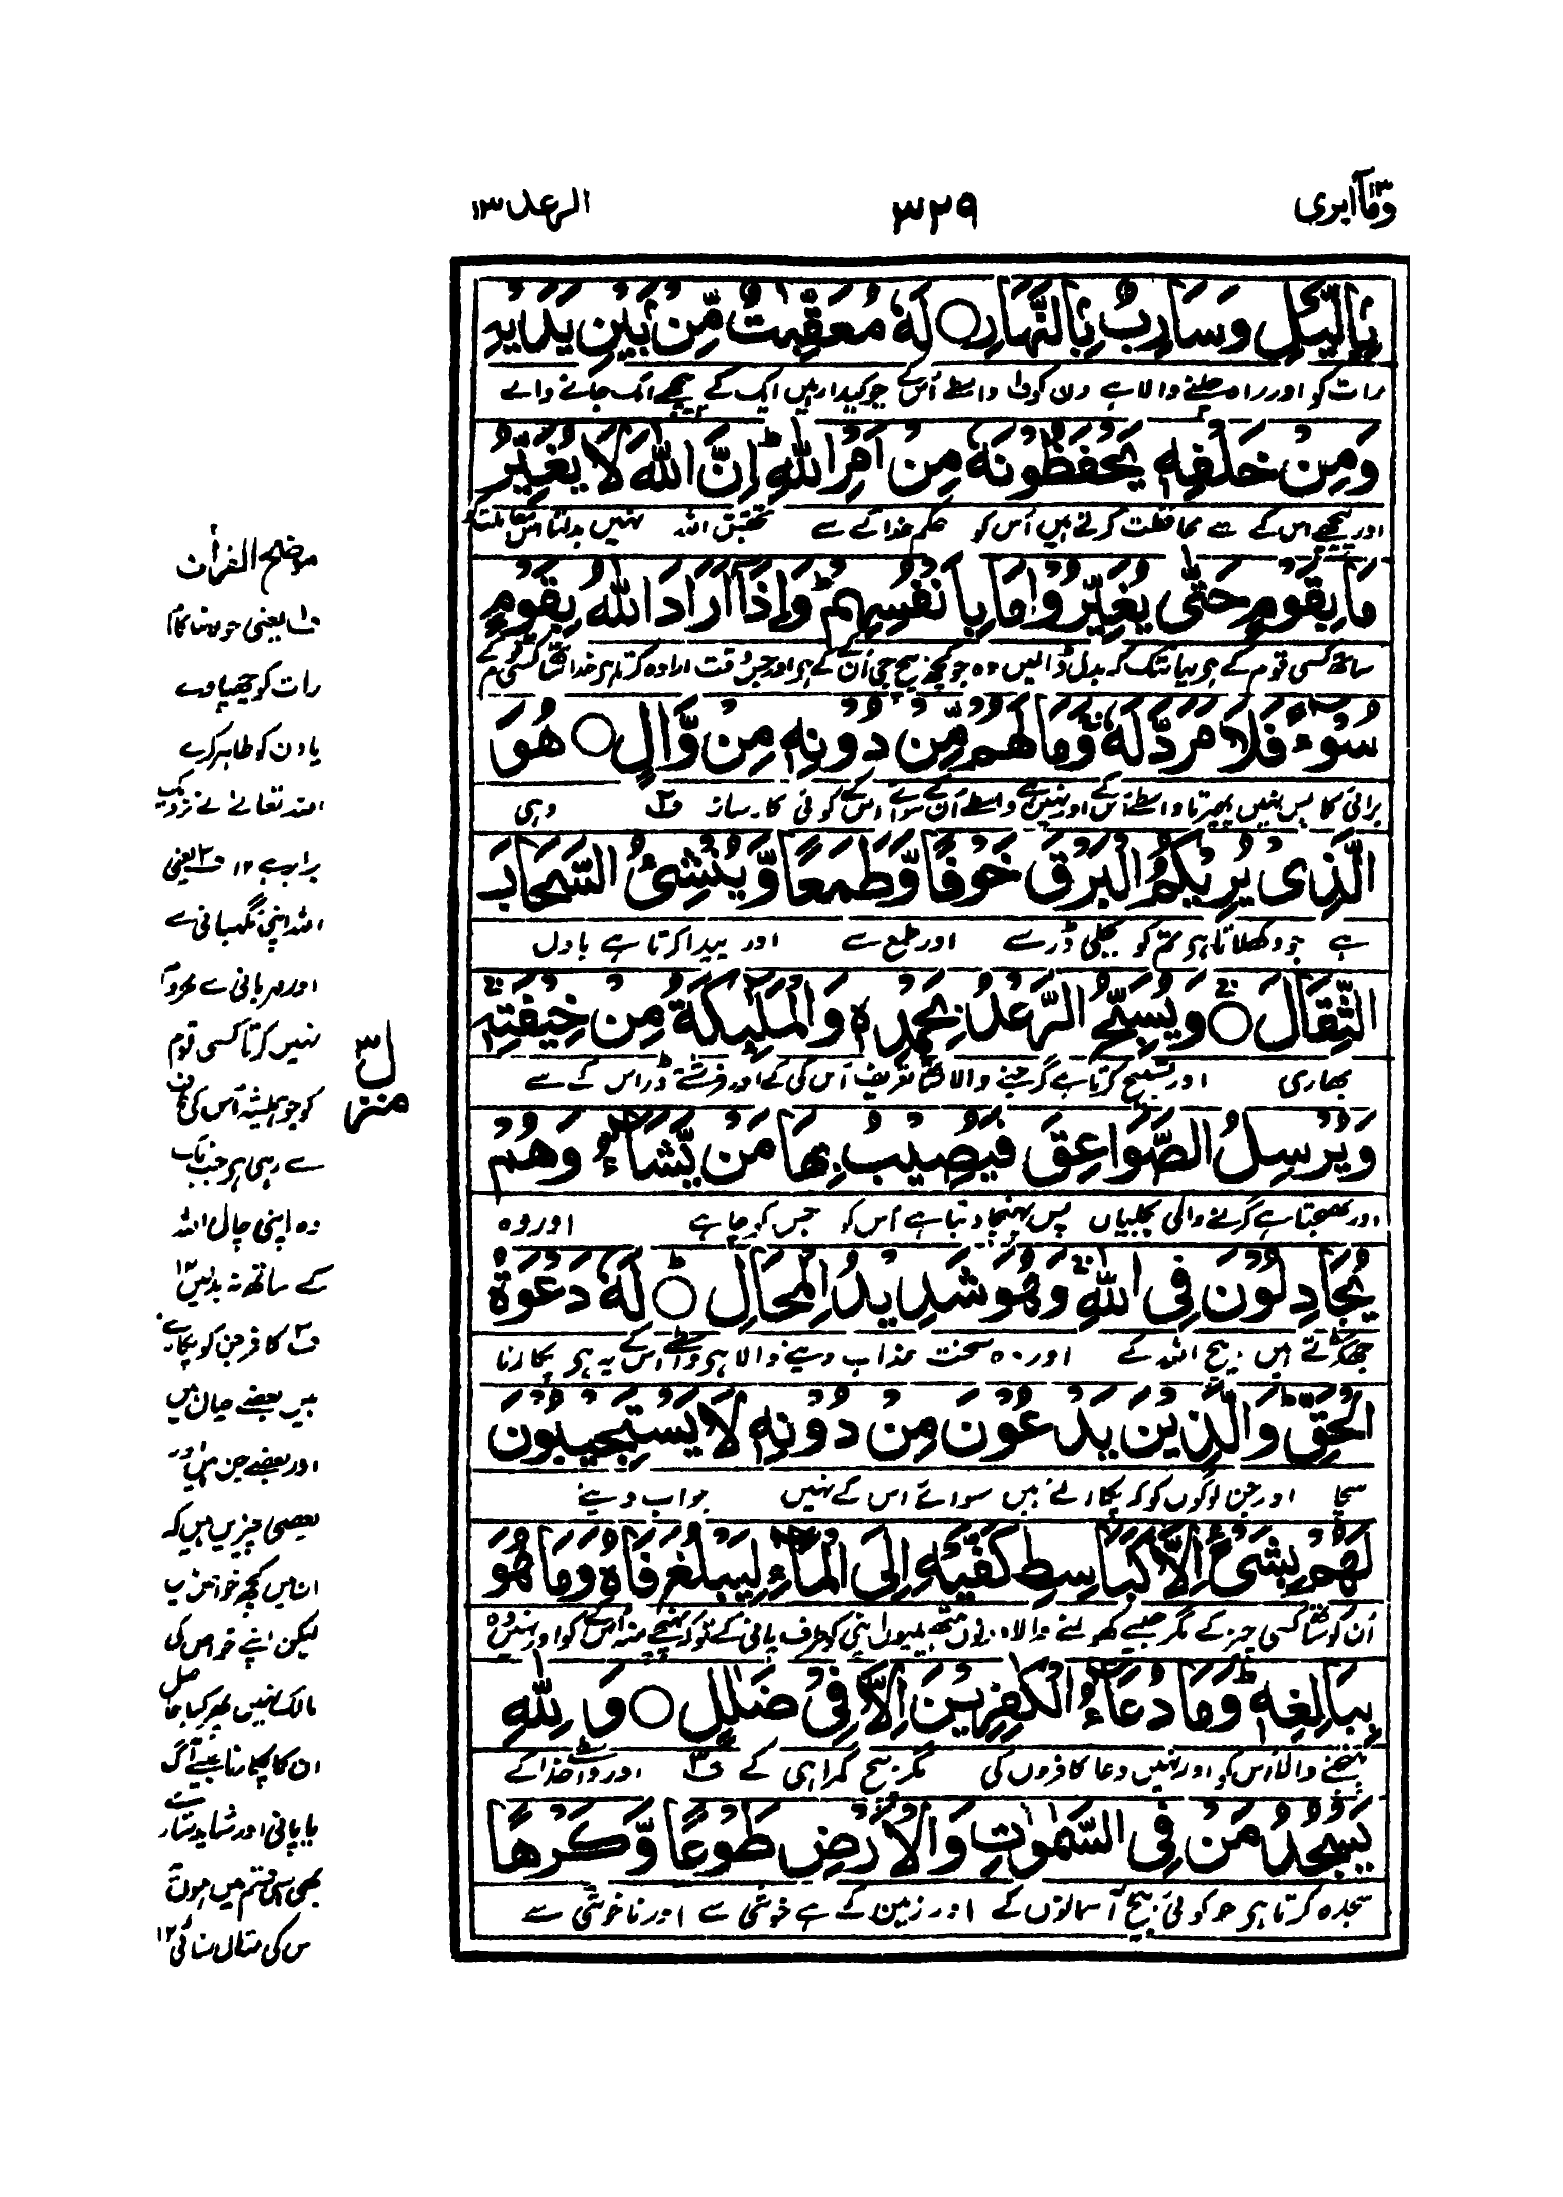 ومآ ابری ١٣
٣٢٩
الرعد ١٣
بِالَّيْلِ وَسَارِبٌۢ بِالنَّهَارِ ○ لَهٗ مُعَقِّبٰتٌ مِّنْۢ بَيْنِ يَدَيْهِ
رات کو اور راہ چلنے والا ہے دن کو ف۱ واسطے اُس کے چوکیدار ہیں ایک کے پیچھے ایک جانے والے
وَمِنْ خَلْفِهٖ يَحْفَظُوْنَهٗ مِنْ اَمْرِ اللّٰهِ ؕ اِنَّ اللّٰهَ لَا يُغَيِّرُ
اور پیچھے اس کے سے محافظت کرتے ہیں اُس کو حکم خدا کے سے تحقیق اللہ نہیں بدلتا
مَا بِقَوْمٍ حَتّٰى يُغَيِّرُوْا مَا بِاَنْفُسِهِمْ ؕ وَاِذَآ اَرَادَ اللّٰهُ بِقَوْمٍ
ساتھ کسی قوم کے ہے یہانتک کہ بدل ڈالیں وہ جو کچھ بیچ جی اُن کے ہے اور جس وقت ارادہ کرتا ہے خدا ساتھ کسی قوم کے
سُوْٓءًا فَلَا مَرَدَّ لَهٗ ۚ وَمَا لَهُمْ مِّنْ دُوْنِهٖ مِنْ وَّالٍ ○ هُوَ
برائی کا پس نہیں پھیرنا واسطے اُس کے اور نہیں ہے واسطے اُن کے سوائے اس کے کوئی کارساز ف۲ وہی
الَّذِىْ يُرِيْكُمُ الْبَرْقَ خَوْفًا وَّطَمَعًا وَّيُنْشِئُ السَّحَابَ
ہے جو دکھلاتا ہے تم کو بجلی ڈر سے اور طمع سے اور پیدا کرتا ہے بادل
الثِّقَالَ ○ وَيُسَبِّحُ الرَّعْدُ بِحَمْدِهٖ وَالْمَلٰٓئِكَةُ مِنْ خِيْفَتِهٖ
بھاری اور تسبیح کرتا ہے گرجنے والا ساتھ تعریف اُس کی کے اور فرشتے ڈر اس کے سے
وَيُرْسِلُ الصَّوَاعِقَ فَيُصِيْبُ بِهَا مَنْ يَّشَآءُ وَهُمْ
اور بھیجتا ہے گرنے والی بجلیاں پس پہنچا دیتا ہے اُس کو جس کو چاہے اور وہ
يُجَادِلُوْنَ فِى اللّٰهِ ۚ وَهُوَ شَدِيْدُ الْمِحَالِ ○ لَهٗ دَعْوَةُ
جھگڑتے ہیں بیچ اللہ کے اور وہ سخت عذاب دینے والا ہے واسطے اُس کے یہ ہے پکارنا
الْحَقِّ ؕ وَالَّذِيْنَ يَدْعُوْنَ مِنْ دُوْنِهٖ لَا يَسْتَجِيْبُوْنَ
سچا اور جن لوگوں کو کہ پکارتے ہیں سوائے اس کے نہیں جواب دیتے
لَهُمْ بِشَىْءٍ اِلَّا كَبَاسِطِ كَفَّيْهِ اِلَى الْمَآءِ لِيَبْلُغَ فَاهُ وَمَا هُوَ
اُن کو ساتھ کسی چیز کے مگر جیسے کھولنے والا دونوں ہتھیلیوں اپنی کو طرف پانی کے توکہ پہنچے منہ اُس کے کو اور نہیں وہ
بِبَالِغِهٖ ؕ وَمَا دُعَآءُ الْكٰفِرِيْنَ اِلَّا فِىْ ضَلٰلٍ ○ وَلِلّٰهِ
پہنچنے والا اُس کو اور نہیں دعا کافروں کی مگر بیچ گمراہی کے ف۳ اور واسطے خدا کے
يَسْجُدُ مَنْ فِى السَّمٰوٰتِ وَالْاَرْضِ طَوْعًا وَّكَرْهًا
سجدہ کرتا ہے جو کوئی بیچ آسمانوں کے اور زمین کے ہے خوشی سے اور ناخوشی سے
منزل ٣
موضح القرآن
ف۱ یعنی جونسا کام
رات کو چھپاوے
یا دن کو ظاہر کرے
اللہ تعالےٰ کے نزدیک
برابر ہے ١٢ ف۲ یعنی
اللہ اپنی نگہبانی سے
اور مہربانی سے محروم
نہیں کرتا کسی قوم
کو جو ہمیشہ اُس کی طرف
سے رہی ہے جب تک
وہ اپنی چال اللہ
کے ساتھ نہ بدلیں ١٢
ف۳ کافر جن کو پکارتے
ہیں بعضے خیال ہیں
اور بعضے جن ہیں اور
بعضی چیزیں ہیں کہ
ان میں کچھ خواص ہیں
لیکن اپنے خواص کی
مالک نہیں پھر کیا حاصل
ان کا پکارنا جیسے آگ
یا پانی اور شاید ستارے
بھی اسی قسم میں ہوں
اس کی مثال سنائی ١٢